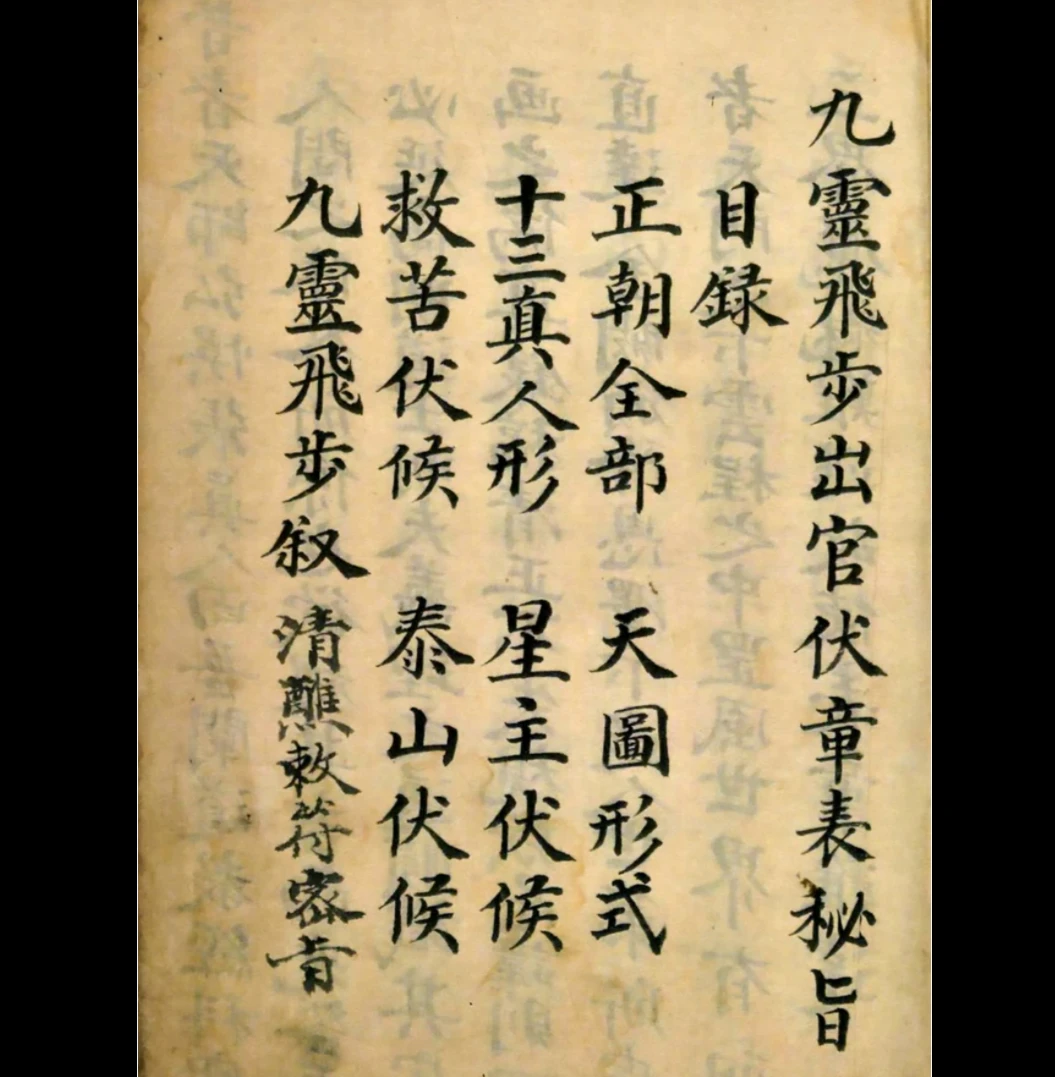 九靈飛步出官伏章表秘旨
目録
正朝全部 天圖形式
十三真人形 星主伏候
救苦伏候 泰山伏候
九靈飛步叙 清醮敕符密旨